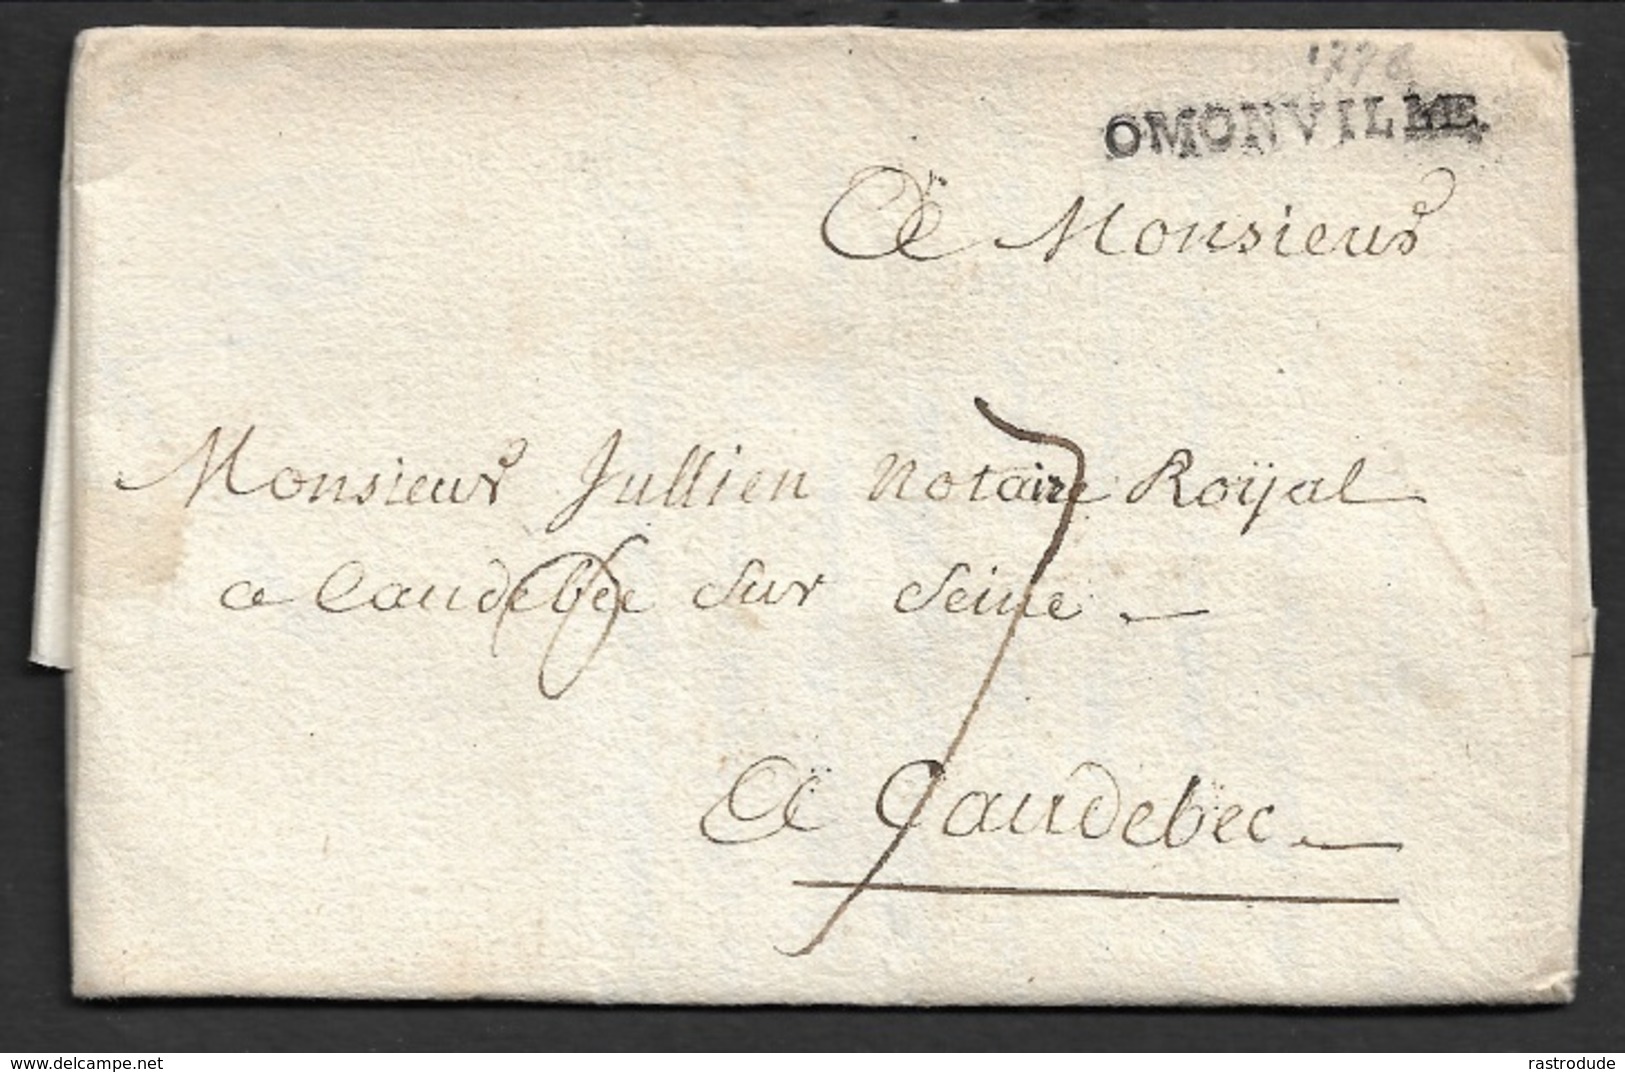 1778
OMONVILLE.
A Monsieur
Monsieur Jullien Notaire Roÿal
a Caudebec sur Seine
7
A Caudebec
www.delcampe.net
rastrodude